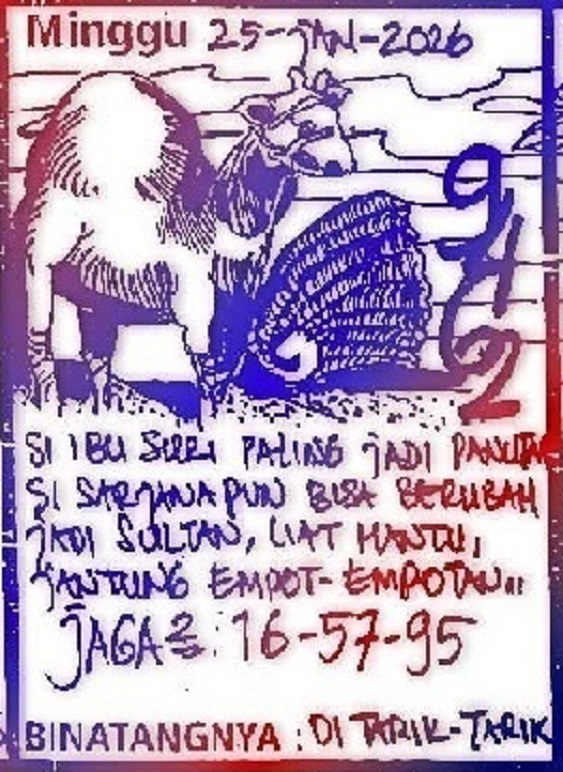 Minggu 25-JAN-2026
SI IBU SURI PALING JADI PANUTAN
SI SARJANAPUN BISA BERUBAH
JADI SULTAN, LIAT HANTU,
JANTUNG EMPOT-EMPOTAN..
JAGA2: 16-57-95
BINATANGNYA : DI TARIK-TARIK